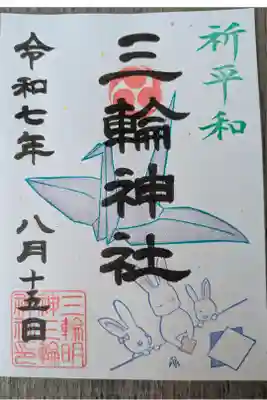 祈平和
三輪神社
令和七年 八月十五日
三輪明
神三輪